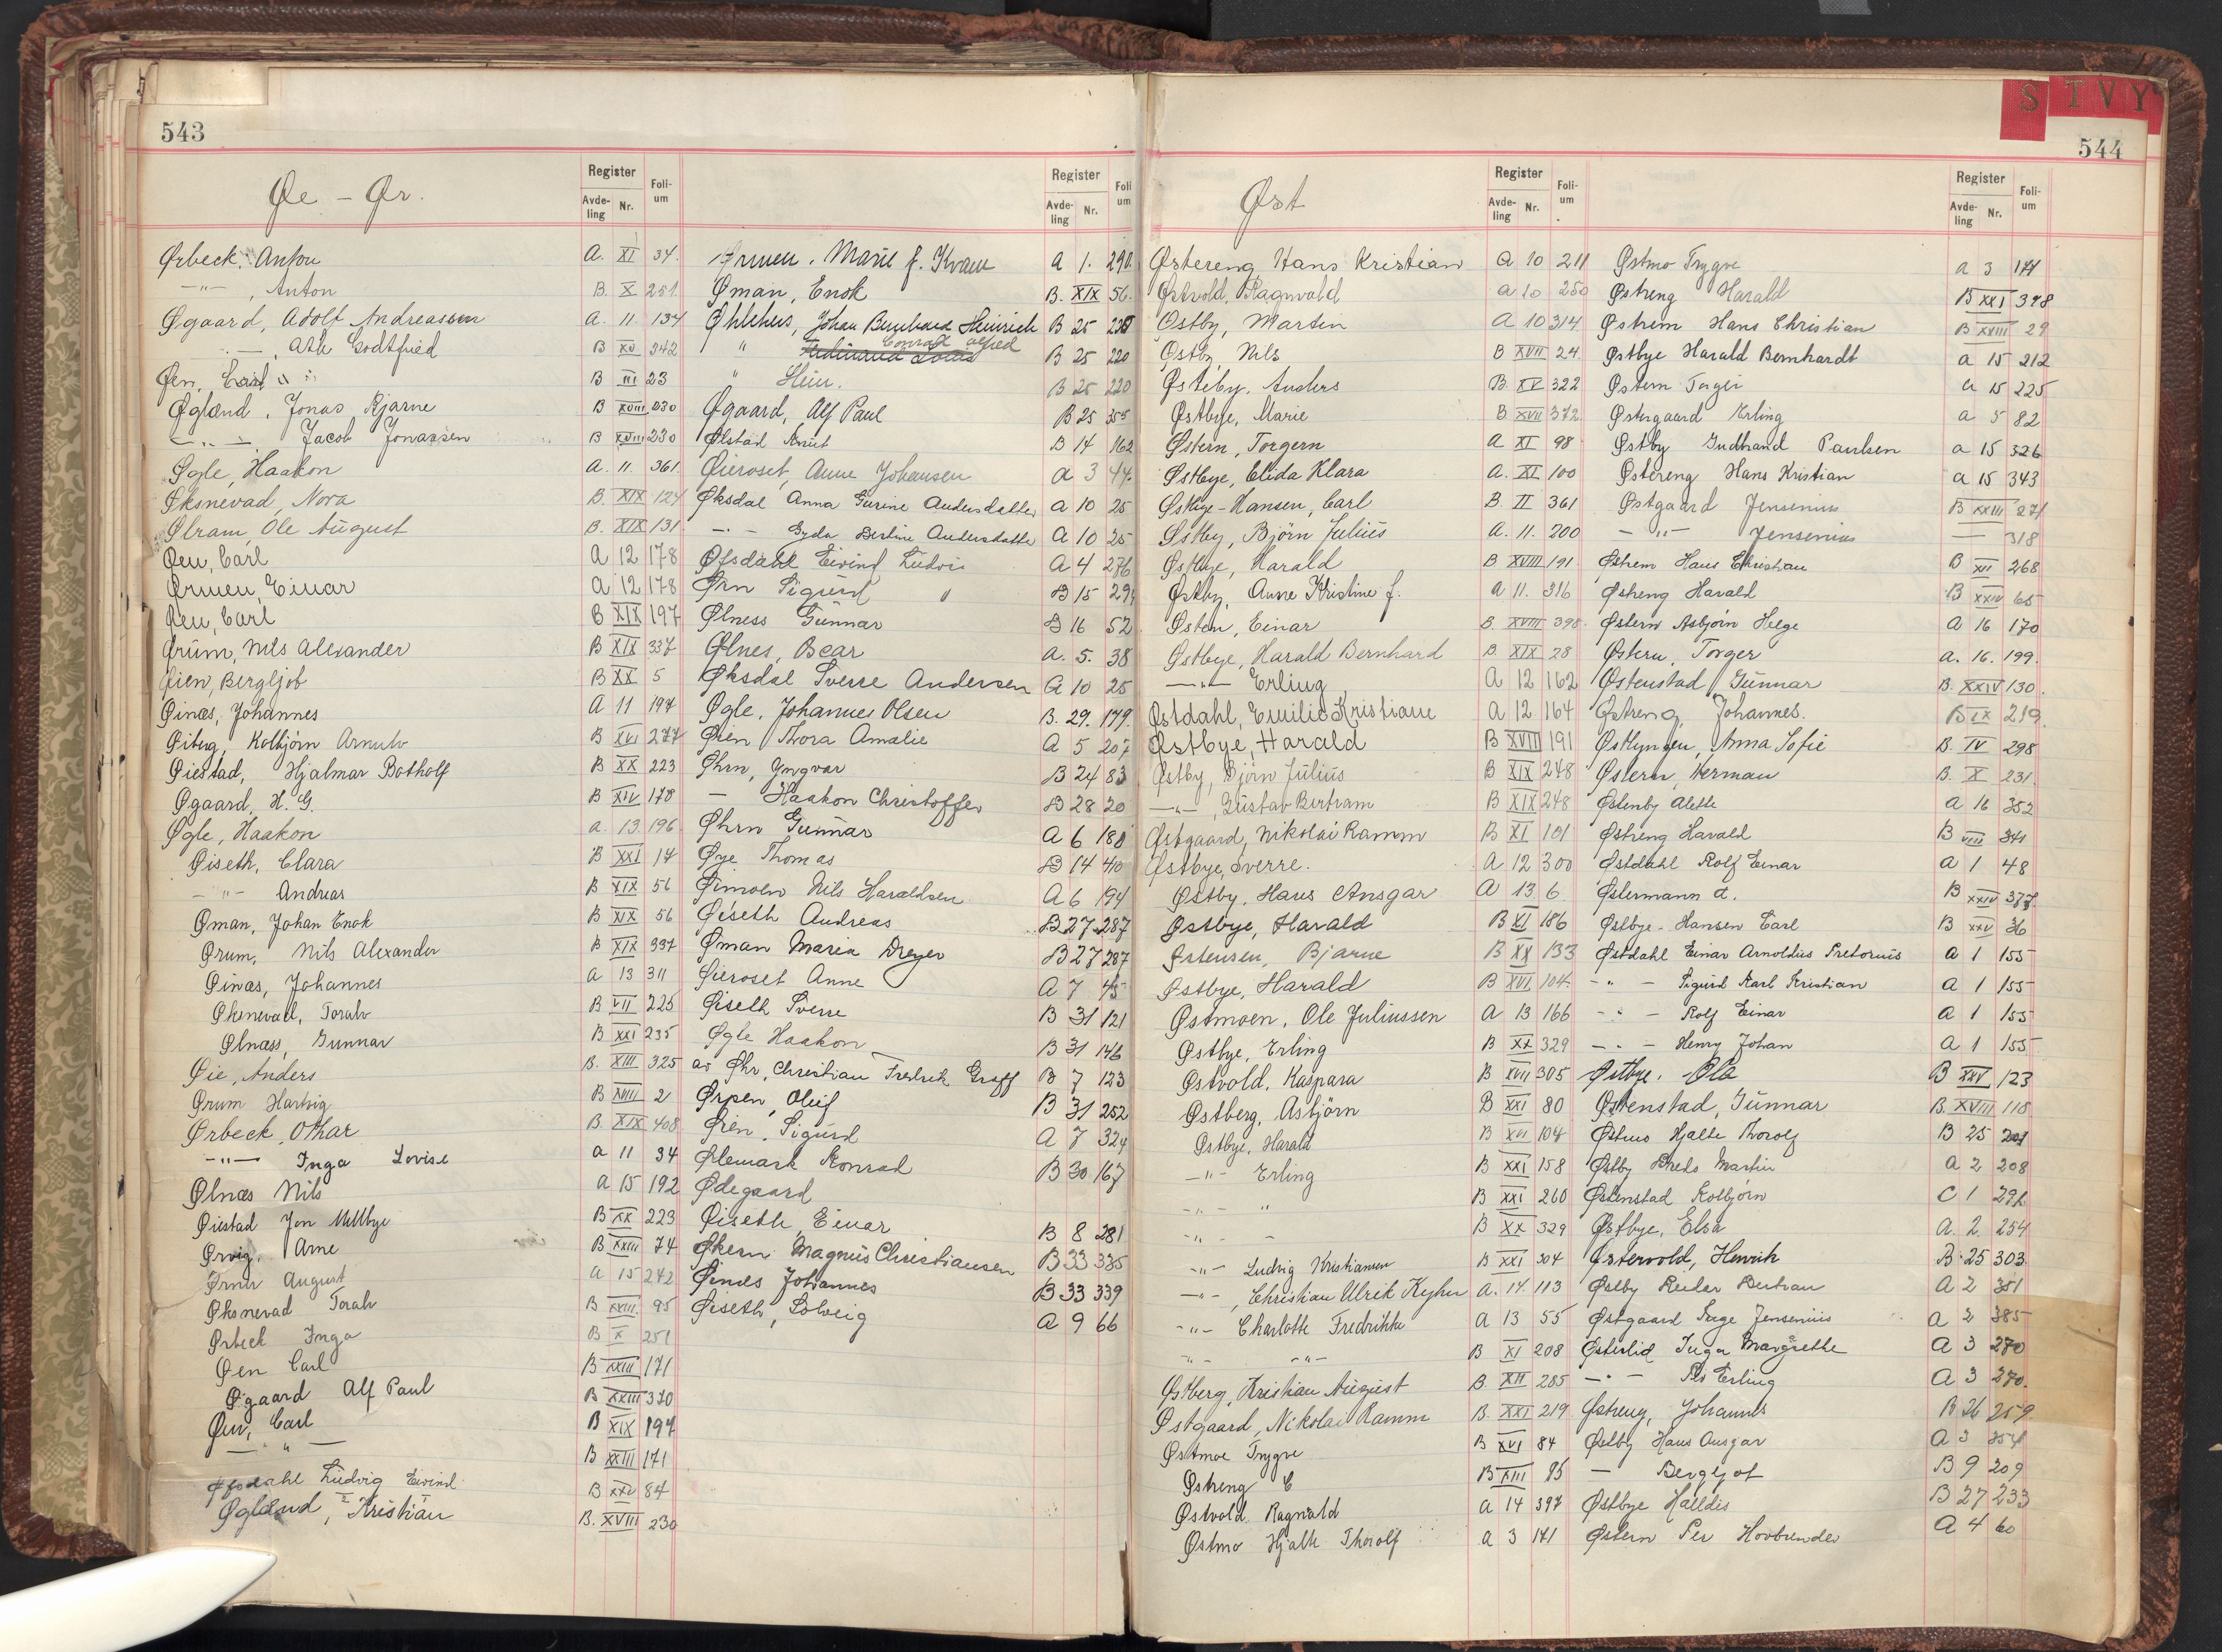 543
Øe - Ør.
Register
Avde-ling
Nr.
Foli-um
Ørbeck, Anton A. XI 34.
-"- , Anton B. X 251.
Øgaard, Adolf Andreassen A. 11. 134
- , Atle Godtfred B XV 342
Øen, Carl B III 23
Øgland, Jonas Bjarne B XVIII 230
-"- Jacob Jonassen B XVIII 230
Øgle, Haakon A. 11. 361.
Øksnevad, Nora B. XIX 124
Ølram, Ole August B. XIX 131
Øen, Carl A 12 178
Ørmen, Einar A 12 178
Øen, Carl B XIX 197
Ørum, Nils Alexander B XIX 337
Øien, Bergljot B XX 5
Øinæs, Johannes A 11 197
Øiberg, Kolbjørn Arnulv B XVI 277
Øiestad, Hjalmar Botholf B XX 223
Øgaard, H. G. B XIV 178
Øgle, Haakon a. 13. 196
Øiseth, Clara B XXI 17
-"- Andreas B XIX 56
Øman, Johan Enok B XIX 56
Ørum, Nils Alexander B XIX 337
Øinæs, Johannes a 13 311
Øksnevad, Toralv B VII 225
Ølnæss, Gunnar B XXI 235
Øie, Anders B. XIII 325
Ørum Hartvig B XVIII 2
Ørbeck, Othar B. XIX 408
-"- Inga Lovise a 11 34
Ølnæs Nils a 15 192
Øiestad Jon Mellbye B XX 223
Ørvig, Arne B XXIII 74
August a 15 242
Øksnevad Toralv B XXIII 95
Ørbeck Inga B X 251
Øen Carl B XXIII 171
Øgaard Alf Paul B XXIII 370
Øen, Carl B XIX 197
- " - B XXIII 171
Øfsdahl Ludvig Eivind B XXV 84
Øgland, Kristian B. XVIII 230
Register
Avde-ling
Nr.
Foli-um
Ørmen, Marie f. Kvam A 1. 290.
Øman, Enok B. XIX 56.
Øhlckers, Johan Bernhard Heinrich B 25 220
" Conrad Alfred B 25 220
" Hein. B 25 220
Øgaard, Alf Paul B 25 355
Ølstad Knut B 14 162
Øieroset, Anne Johansen a 3 44.
Øksdal Anna Gurine Andersdatter a 10 25
-"- Gyda Andersdatter A 10 25
Øfsdahl Eivind Ludvig A 4 276
Ørn Sigurd " B 15 29
Ølness Gunnar B 16 52
Ølnes, Oscar A. 5. 38
Øksdal Sverre Andersen A 10 25
Øgle, Johannes Olsen B. 29. 179.
Øien Thora Amalie A 5 207
Øhrn, Yngvar B 24 83
- Haakon Christoffer B 28 20
Øhrn Gunnar A 6 180
Øye Thomas B 14 40
Øimoen Nils Haraldsen A 6 194
Øiseth Andreas B 27 287
Øman Maria Dreyer B 27 287
Øieroset Anne A 7 45
Øiseth Sverre B 31 121
Øgle Haakon B 31 146
av Øhr, Christian Fredrik Graff B 7 123
Ørpen, Oluf B 31 252
Øien, Sigurd A 7 324
Ølemark Konrad B 30 167
Ødegaard
Øiseth, Einar B 8 281
Økern Magnus Christiansen B 33 335
Øinæs Johannes B 33 339
Øiseth, Solveig A 9 66
S T V Y
544
Øst
Register
Avde-ling
Nr.
Foli-um
Østereng, Hans Kristian a 10 211
Østvold, Ragnvald a 10 250
Østby, Martin A 10 314
Østby, Nils B XVII 24.
Østeby, Anders B. XV 322
Østbye, Marie B XVII 372
Østern, Torgern A XI 98
Østbye, Elida Klara A. XI 100
Østbye-Hansen, Carl B. II 361
Østby, Bjørn Julius A. 11. 200
Østbye, Harald B XVIII 191
Østby, Anne Kristine f. A 11. 316
Østen, Einar B. XVIII 398
Østbye, Harald Bernhard B. XIX 28
-"- Erling A 12 162
Østdahl, Emilie Kristiane A 12 164
Østbye, Harald B XVIII 191
Østby, Bjørn Julius B XIX 248
-"-, Gustav Bertram B XIX 248
Østgaard, Nikolai Ramm B XI 101
Østbye, Sverre. A 12 300
Østby, Hans Ansgar A 13 6
Østbye, Harald B XI 186
Østensen, Bjarne B XX 133
Østbye, Harald B XVI 104
Østmoen, Ole Juliussen A 13 166
Østbye, Erling B XX 329
Østvold, Kaspara B XVII 305
Østberg, Asbjørn B XXI 80
Østbye, Harald B XVI 104
-"- Erling B XXI 158
-"- " B XXI 260
-"- - B XX 329
-"- Ludvig Kristiansen B XXI 304
-"-, Christian Ulrik Keyher A. 14. 113
-"- Charlotte Fredrikke a 13 55
-"- -"- B XI 208
Østberg, Kristian August B. XII 285
Østgaard, Nikolai Ramm B. XXI 219
Østmoe Trygve B XVI 84
Østreng C B XIII 95
Østvold Ragnvald a 14 397
Østmo Hjalte Thorolf a 3 171
Register
Avde-ling
Nr.
Foli-um
Østmo Trygve a 3 171
Østreng Harald B XXI 398
Østrem Hans Christian B XXIII 29
Østbye Harald Bernhardt a 15 212
Østern Torger a 15 225
Østergaard Erling a 5 82
Østby Gudbrand Paulsen a 15 326
Østereng Hans Kristian a 15 343
Østgaard Jensenius B XXIII 271
-"- Jensenius — 318
Østrem Hans Christian B XII 268
Østreng Harald B XXIV 65
Østern Asbjørn Helge A 16 170
Østern, Torger A. 16. 199.
Østenstad, Gunnar B. XXIV 130.
Østreng, Johannes. B IX 219.
Østlyngen, Anna Sofie B. IV 298
Østern, Herman B. X 231.
Østenby Alette a 16 352
Østreng Harald B VIII 341
Østdahl Rolf Einar a 1 48
Østermann A. B XXIV 377.
Østbye-Hansen Carl B XXV 36
Østdahl Einar Arnoldus Pretorius a 1 155
-"- Sigurd Karl Kristian a 1 155
-"- Rolf Einar a 1 155
-"- Henry Johan a 1 155
Østbye, Ola B XXV 123
Østenstad, Gunnar B. XVIII 118
Østmo Hjalte Thorolf B 25 201
Østby Martin a 2 208
Østenstad Kolbjørn C 1 292
Østbye, Elsa A. 2. 254
Østervold, Henrik B. 25 303
Østby Reidar Bertran A 2 351
Østgaard Inge Jensenius A 2 385
Østerlid Inga Margrethe A 3 270
-"- Pls Erling A 3 270.
Østreng, Johannes B 26 259
Østby Hans Ansgar A 3 354
— Bergljot B 9 209
Østbye Halldis B 27 233
Østern Per Hovbrender A 4 60